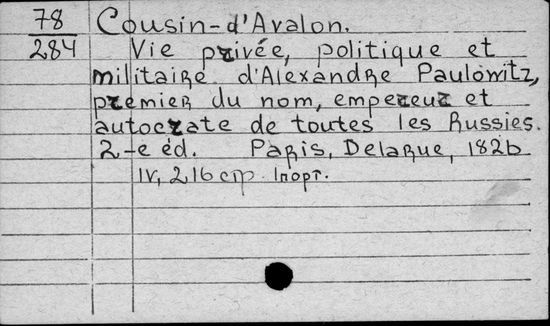 78
284
Cousin-d'Avalon.
Vie privée, politique et
militaire d'Alexandre Paulowitz,
premier du nom, empereur et
autocrate de toutes les Russies.
2-e éd. Paris, Delarue, 1826
IV, 216 стр. 1 порт.